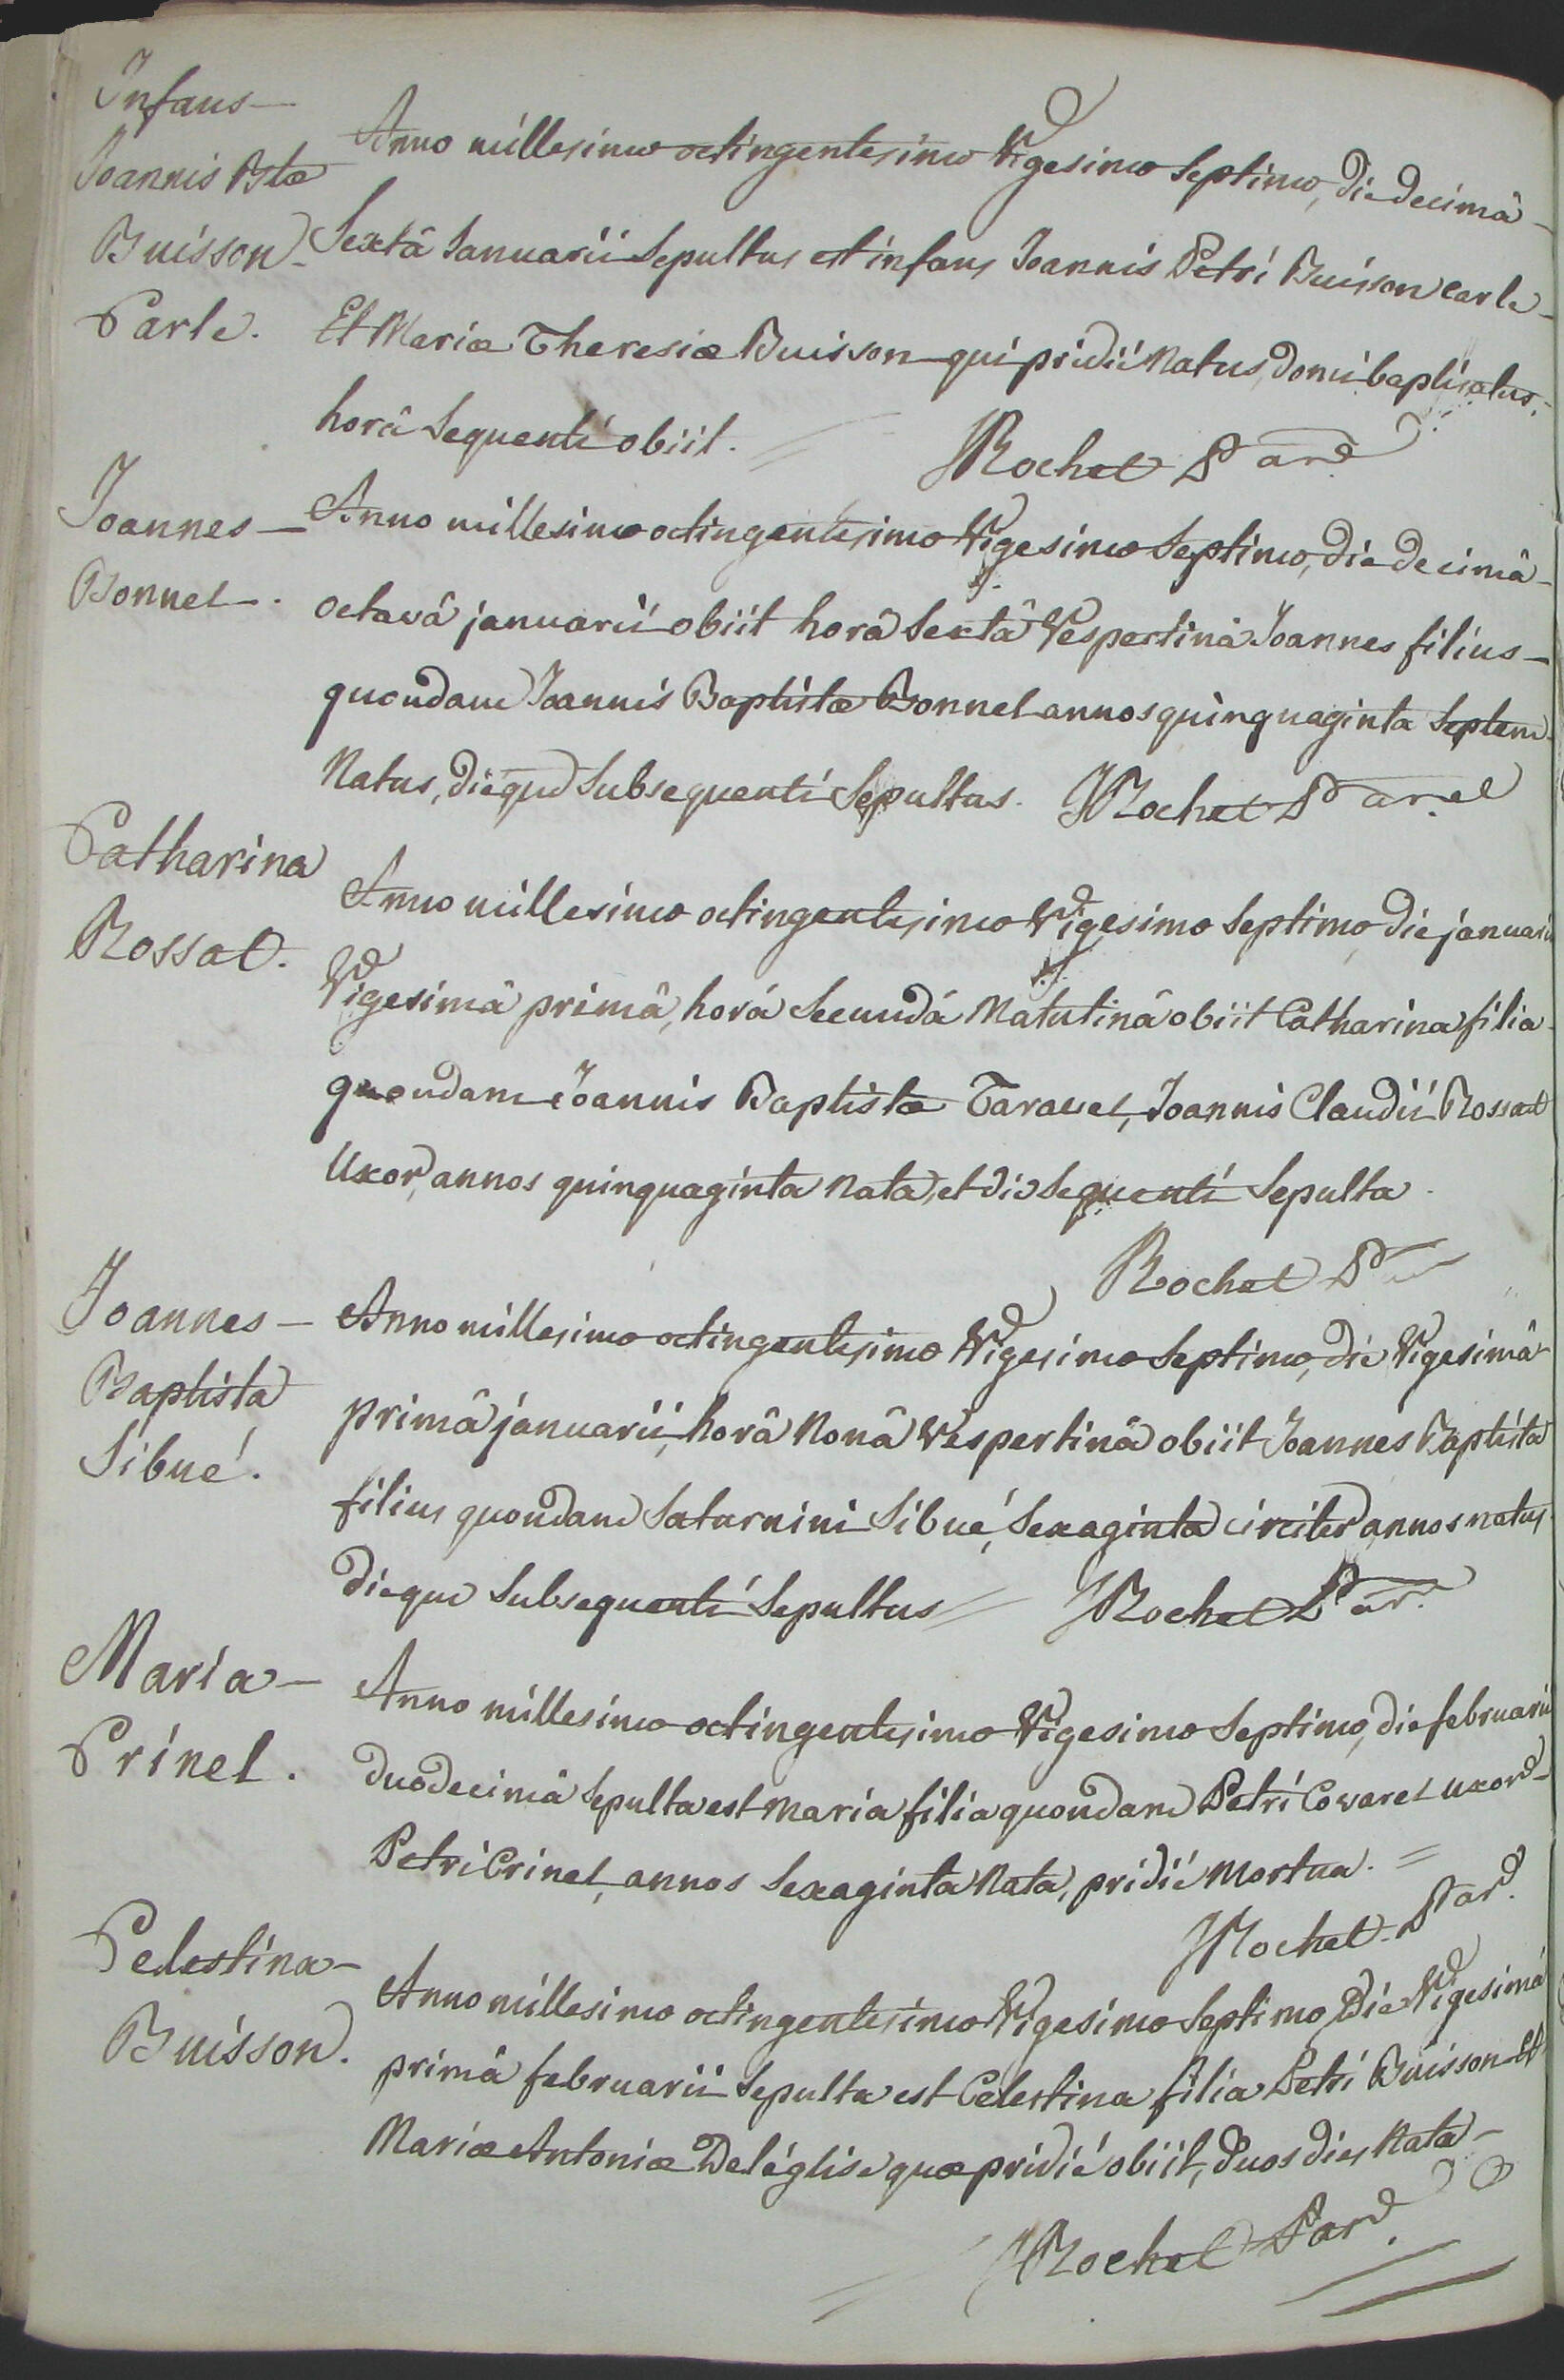 Infans
Joannis Bta
Buisson
Carle.
Anno millesimo octingentesimo Vigesimo Septimo, die decimâ
Sextâ Januarii Sepultus est infans Joannis Petri Buisson Carle
Et Mariæ Theresiæ Buisson qui pridiè Natus, domi baptisatus,
horâ Sequenti obiit.
JRochet Par.
Joannes
Bonnel.
Anno millesimo octingentesimo Vigesimo Septimo, die decimâ
octavâ januarii obiit horâ Sextâ Vespertinâ Joannes filius
quondam Joannis Baptistæ Bonnel annos quinquaginta Septem
Natus, dieque Subsequenti Sepultus. JRochet Par.
Catharina
Rossat.
Anno millesimo octingentesimo Vigesimo Septimo, die januarii
Vigesimâ primâ, horâ Secundâ Matutinâ obiit Catharina filia
quondam Joannis Baptistæ Taravel, Joannis Claudii Rossat
Uxor, annos quinquaginta nata, et die Sequenti Sepulta.
Rochet P
Joannes
Baptista
Sibué.
Anno millesimo octingentesimo Vigesimo Septimo, die Vigesimâ
primâ januarii, horâ Nonâ Vespertinâ obiit Joannes Baptista
filius quondam Saturnini Sibué, Sexaginta circiter annos natus
dieque Subsequenti Sepultus JRochet Par.
Maria
Crinel.
Anno millesimo octingentesimo Vigesimo Septimo, die februarii
duodecimâ Sepulta est Maria filia quondam Petri Covarel uxor
Petri Crinel, annos Sexaginta Nata, pridiè Mortua.
JRochet Par.
Celestina
Buisson.
Anno millesimo octingentesimo Vigesimo Septimo, Die Vigesimâ
primâ februarii Sepulta est Celestina filia Petri Buisson Et
Mariæ Antoniæ Deléglise quæ pridiè obiit, duos dies Nata
JRochet Par.